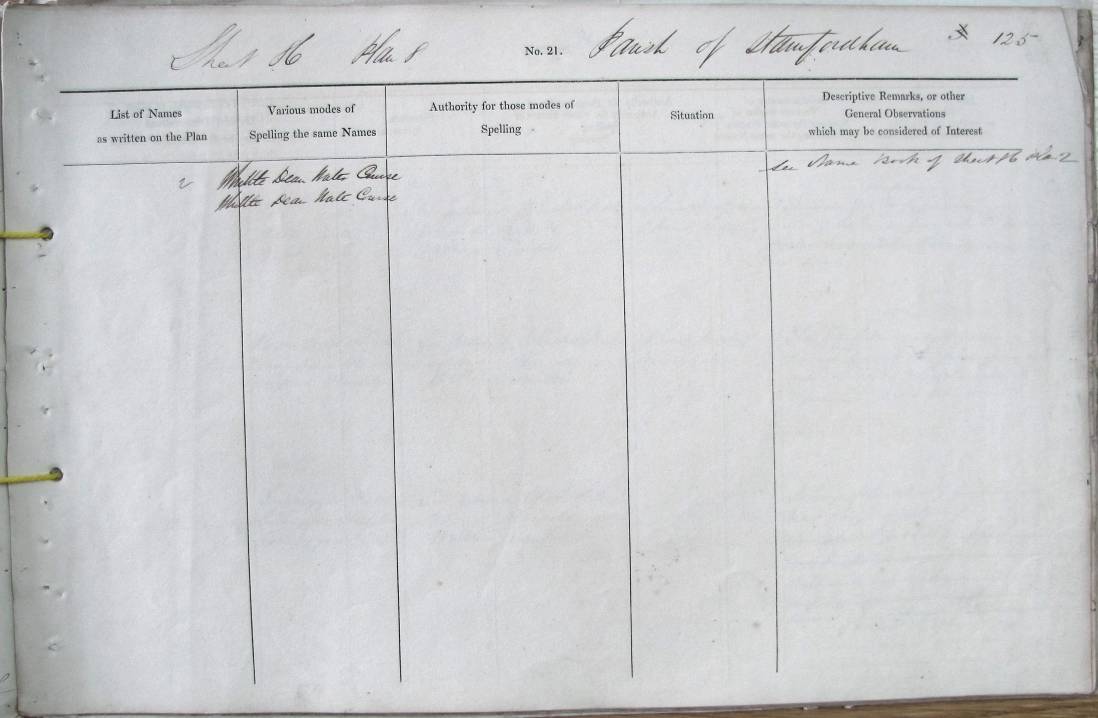 Sheet 86 Plan 8 No. 21. Parish of Stamfordham 125
List of Names
as written on the Plan
Various modes of
Spelling the same Names
Authority for those modes of
Spelling
Situation
Descriptive Remarks, or other
General Observations
which may be considered of Interest
Whittle Dean Water Course
Whittle Dean Water Course
See Name Book of Sheet 86 Plan 2